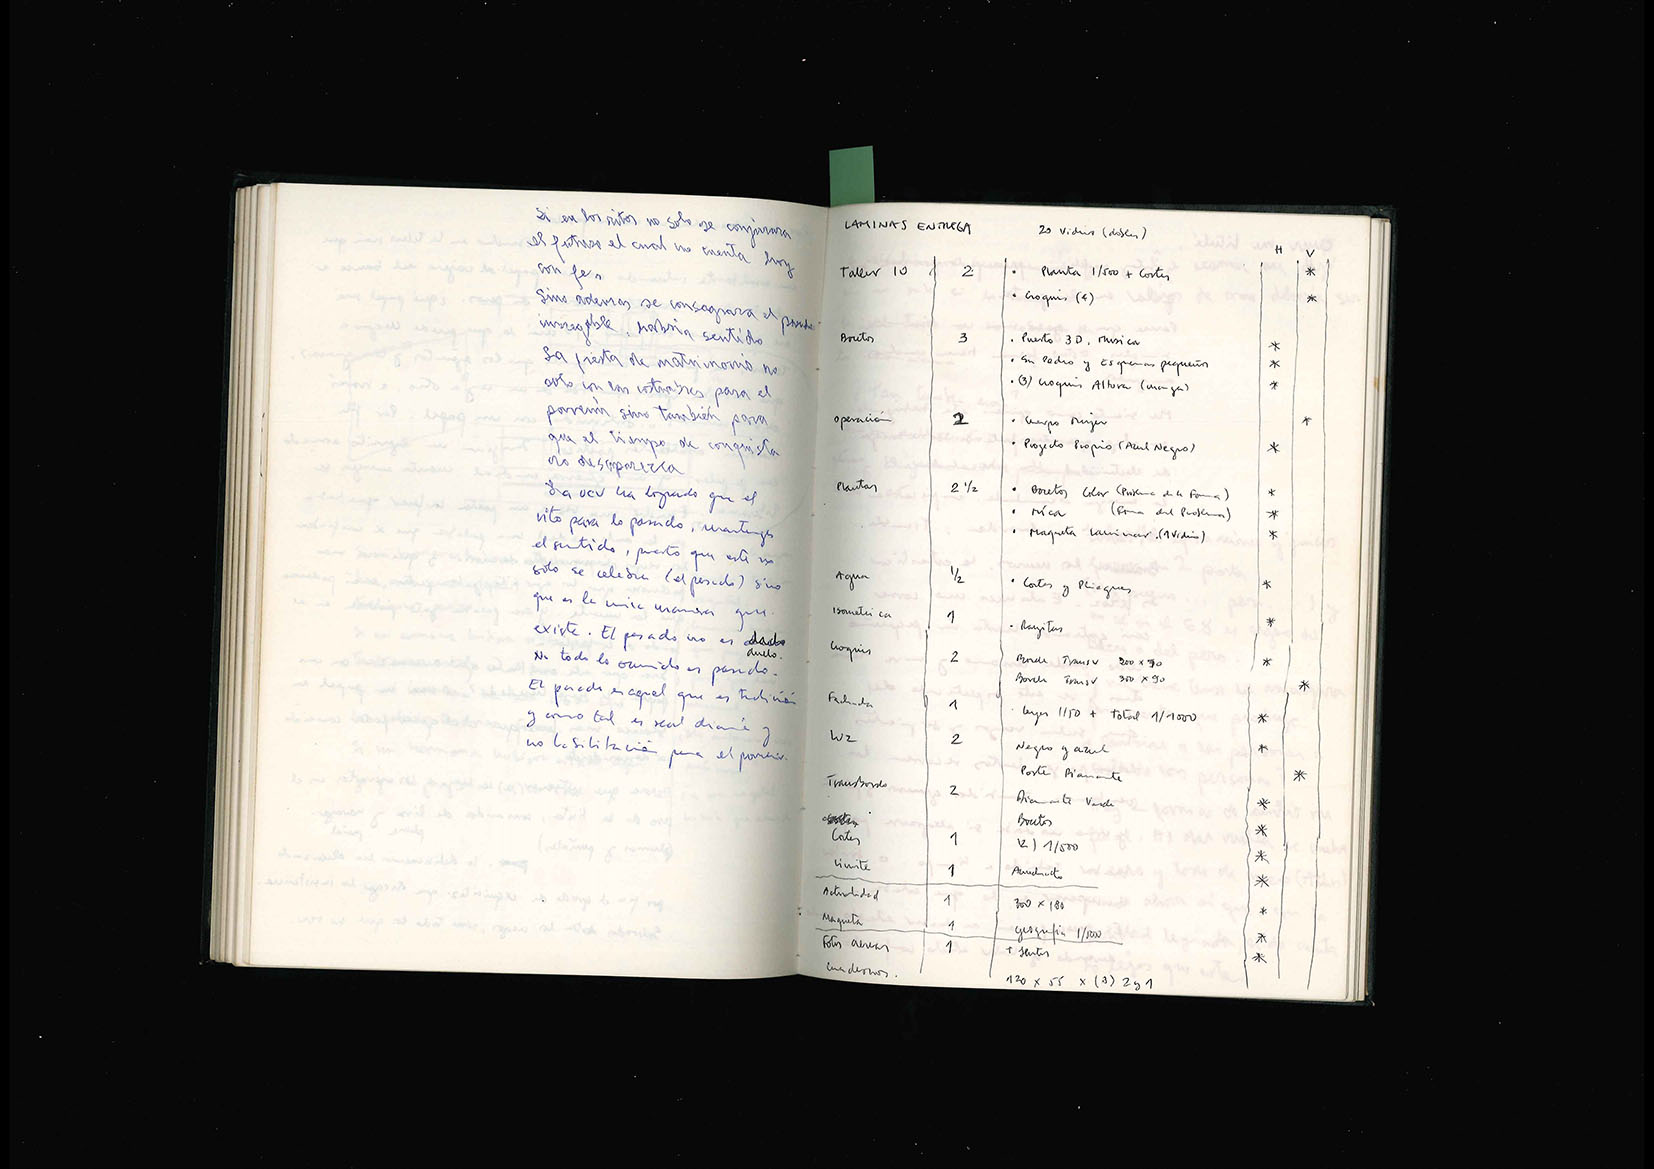 Si en los ritos no solo se conjurara
el futuro el cual no cuenta hoy
con fe,
Sino además se consagrara el pasado
, habría sentido
La fiesta de matrimonio no
solo con las costumbres para el
porvenir sino también para
que el tiempo de conquista
no desaparezca
La UCV ha logrado que el
rito para lo pasado, mantenga
el sentido, puesto que este no
solo se celebra (el pasado) sino
que es la unica manera que
existe. El pasado no es
duelo.
No todo lo ocurrido es pasado.
El pasado es aquel que es tradición
y como tal es real y
no la habilitación para el porvenir.
LAMINAS ENTREGA 20 Vidrios (dobles)
H V
Taller 10 2 • Planta 1/500 + Cortes *
• Croquis (4) *
Bocetos 3 • Puerto 3D, Musica *
• Sn Pedro y Esquemas pequeños *
• (3) Croquis Altura (naranja) *
Operación 2 • Cuerpo Mujer *
• Proyecto Propio (Azul Negro) *
Plantas 2 1/2 • Bocetos Color (Problema de la Forma) *
• Mica (Forma del Problema) *
• Maqueta Laminar. (1 Vidrio) *
Agua 1/2 • Cortes y Pliegues *
Isometrica 1 • Rayitas *
Croquis 2 Borde Transv 200 x 90 *
Borde Transv 300 x 90 *
Fachada 1 1/50 + total 1/1000 *
Luz 2 Negro y azul *
Poste Diamante *
Transbordo 2 Diamante Verde *
Bocetos *
Cortes 1 12) 1/500 *
Limite 1 Acueducto *
Actividad 1 300 x 180 *
Maqueta 1 geografia 1/500 *
Fotos aereas 1 *
Cuadernos. 120 x 55 x (3) 2 y 1